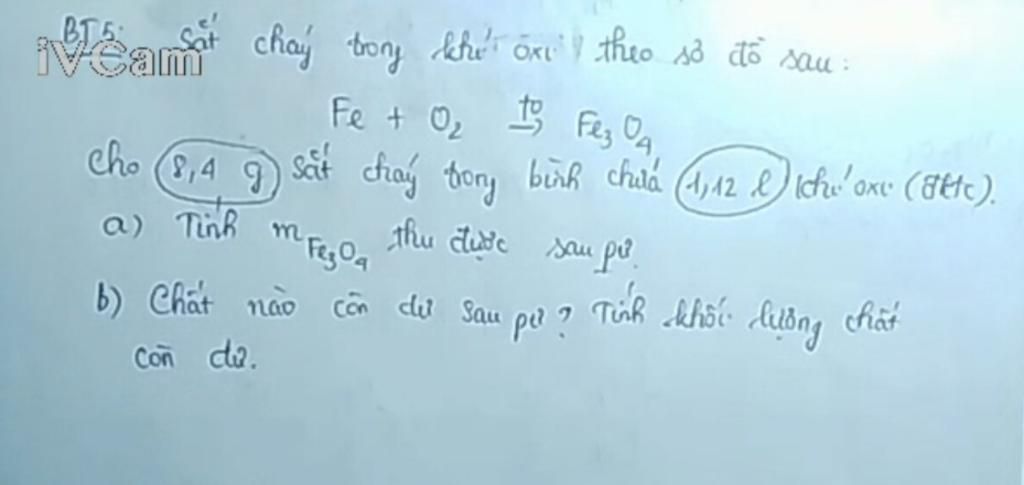 BT5: Sắt cháy trong khí oxi theo sơ đồ sau:
iVCam
Fe + O₂ →(t⁰) Fe₃O₄
Cho 8,4 g sắt cháy trong bình chứa 1,12 l khí oxi (đktc).
a) Tính m Fe₃O₄ thu được sau pư.
b) Chất nào còn dư sau pư? Tính khối lượng chất
còn dư.